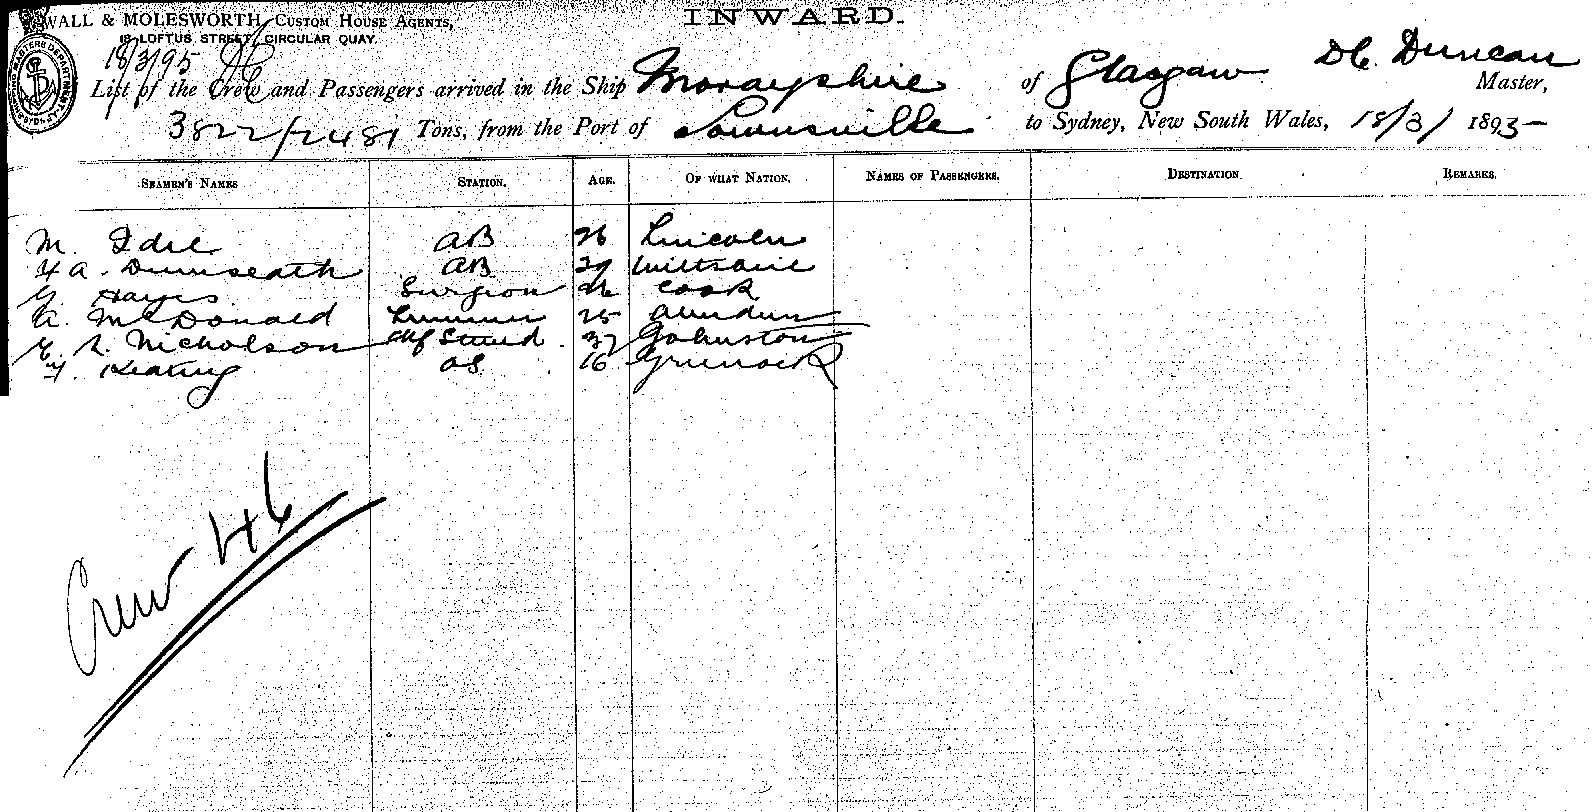 WALL & MOLESWORTH, CUSTOM HOUSE AGENTS,
INWARD.
18 LOFTUS STREET, CIRCULAR QUAY.
18/3/95
D C. Duncan
List of the Crew and Passengers arrived in the Ship Morayshire of Glasgow Master,
3822/2481 Tons, from the Port of Townsville to Sydney, New South Wales, 18/3/ 1895
SEAMEN'S NAMES STATION. AGE. OF WHAT NATION. NAMES OF PASSENGERS. DESTINATION. REMARKS.
M. Idle AB 26 Lincoln
A. Dunseath AB 29 Wiltshire
Hayes Surgeon 26 Cork
A. McDonald 25 Aberdeen
Nicholson 37 Johnston
Keating OS 16 Greenock
Crew 46